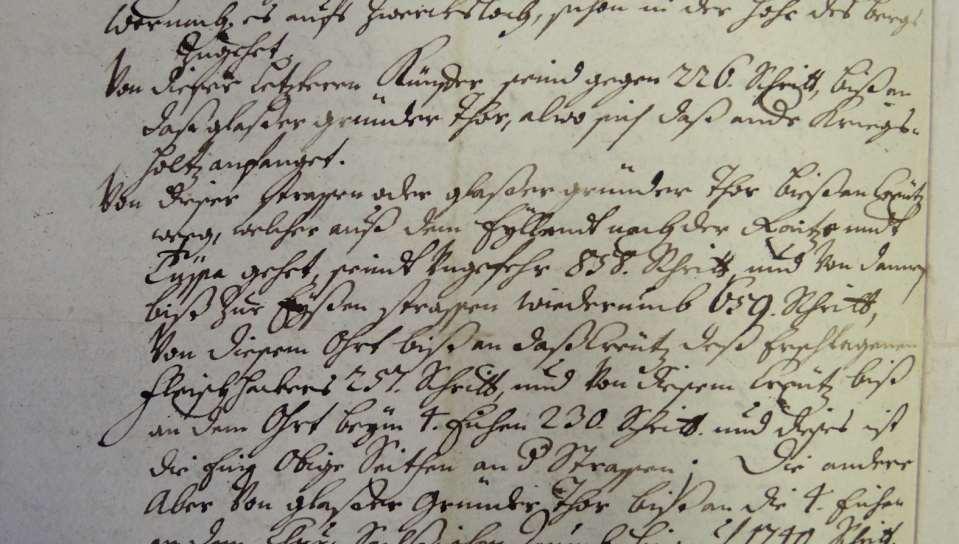 wornach es aufs Zwercksloch, schon in der Höhe des bergs
Zugehet,
Von dieser letzteren seind gegen 226. Schritt, biß an
daß glaßer gründer Thor, alwo sich daß ande Kriegs-
holtz anfanget.
Von dieser strassen oder glaßer gründer Thor bieß an Creütz
weeg, welcher auß dem nach der undt
gehet, seindt Ungefehr 838. Schritt, und Von dannen
biß Zur strassen wiederumb 659. Schritt,
Von diesem Ohrt biß an daß Creütz deß Erschlagenen
fleischhakers 257. Schritt, und Von diesem Creütz biß
an dem Ohrt beÿm 4. Euhen 230. Schritt. und dieses ist
die Obige Seithen an d Strassen; Die andere
Aber Von glaßer Gründer Thor biß an die 4. Eichen
1749. Schritt